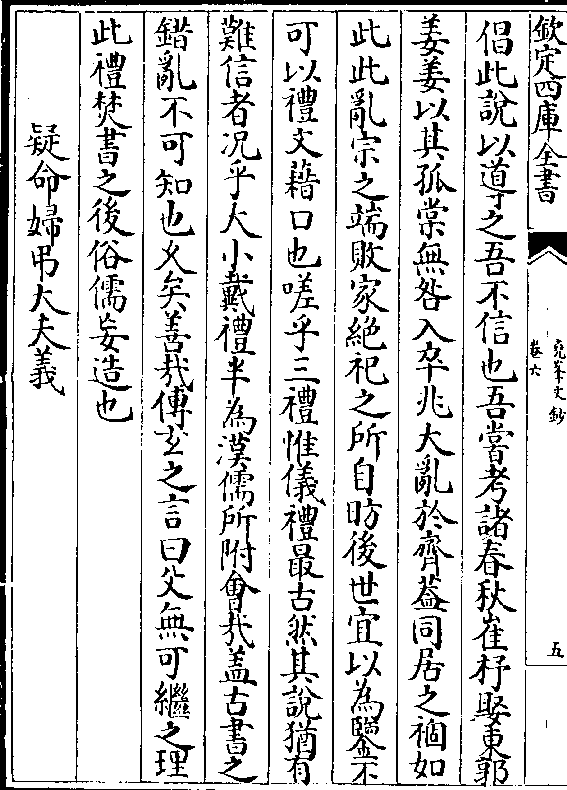 欽定四庫全書
堯峯文鈔
卷六
五
倡此說以道之吾不信也吾嘗考諸春秋崔杼娶東郭
姜姜以其孤棠無咎入卒兆大亂於齊葢同居之禍如
此此亂宗之端敗家絶祀之所自昉後世宜以為鑒不
可以禮文藉口也嗟乎三禮惟儀禮最古然其說猶有
難信者况乎大小戴禮半為漢儒所附會哉盖古書之
錯亂不可知也久矣善哉傅玄之言曰父無可繼之理
此禮焚書之後俗儒妄造也
疑命婦弔大夫義